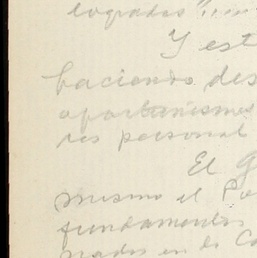 logrados"
Y est
haciendo des
oportunismos
res personal
El G
mismo el Po
fundamentos
nados en la Co